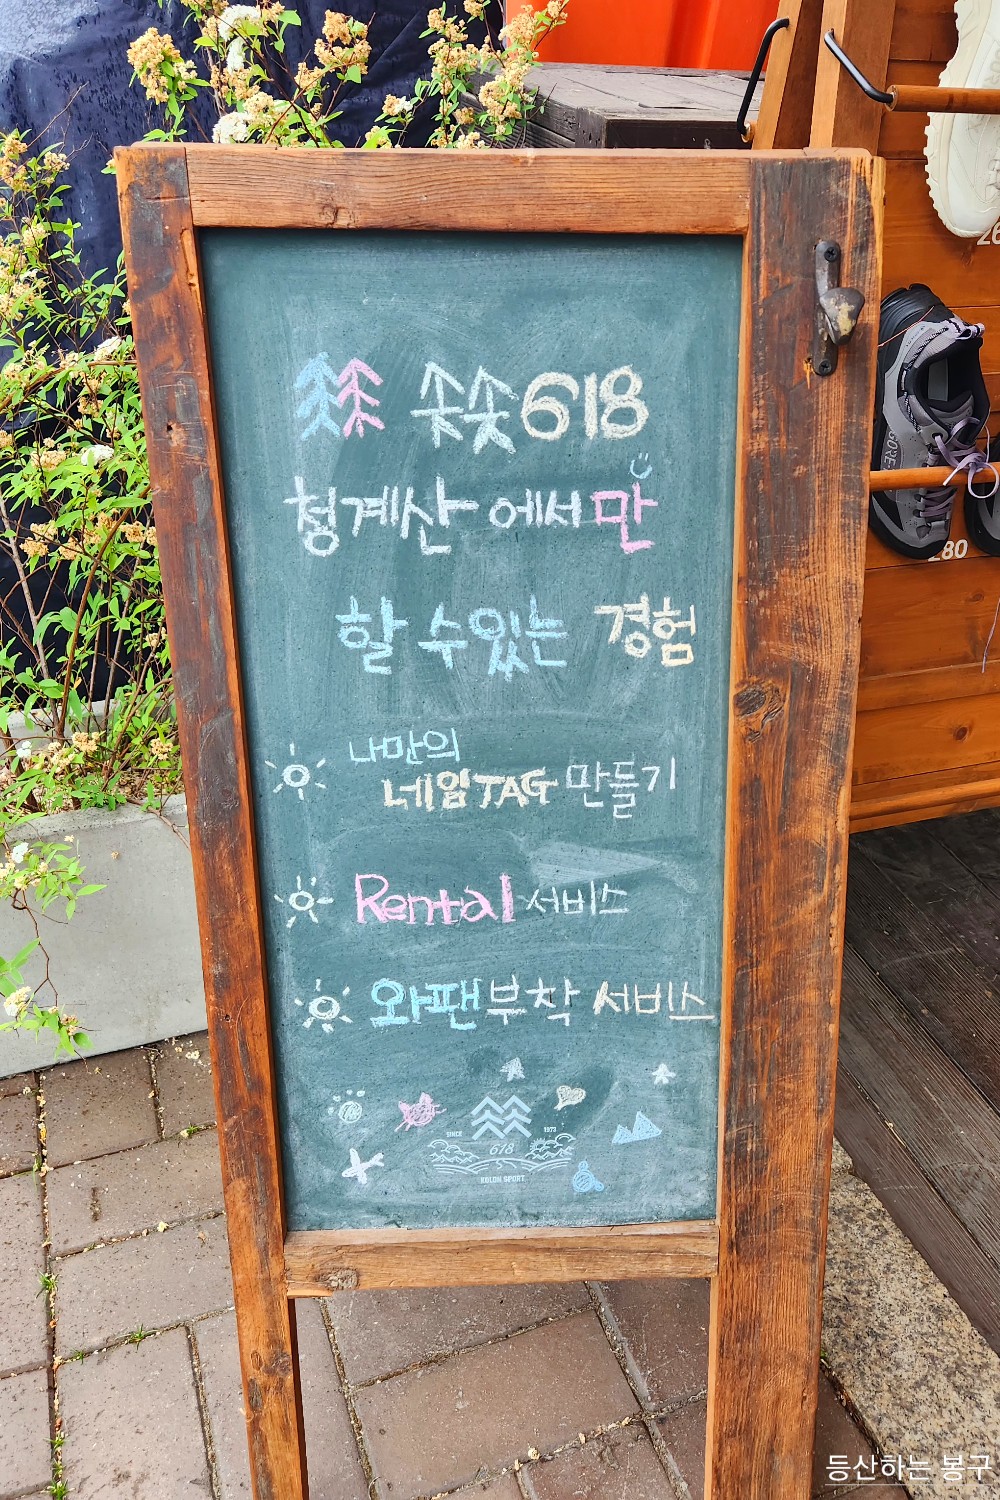 솟솟618
청계산에서만
할 수 있는 경험
나만의
네임TAG 만들기
Rental 서비스
와펜 부착 서비스
SINCE 1973
618
KOLON SPORT
26
GORE
280
등산하는 봉구